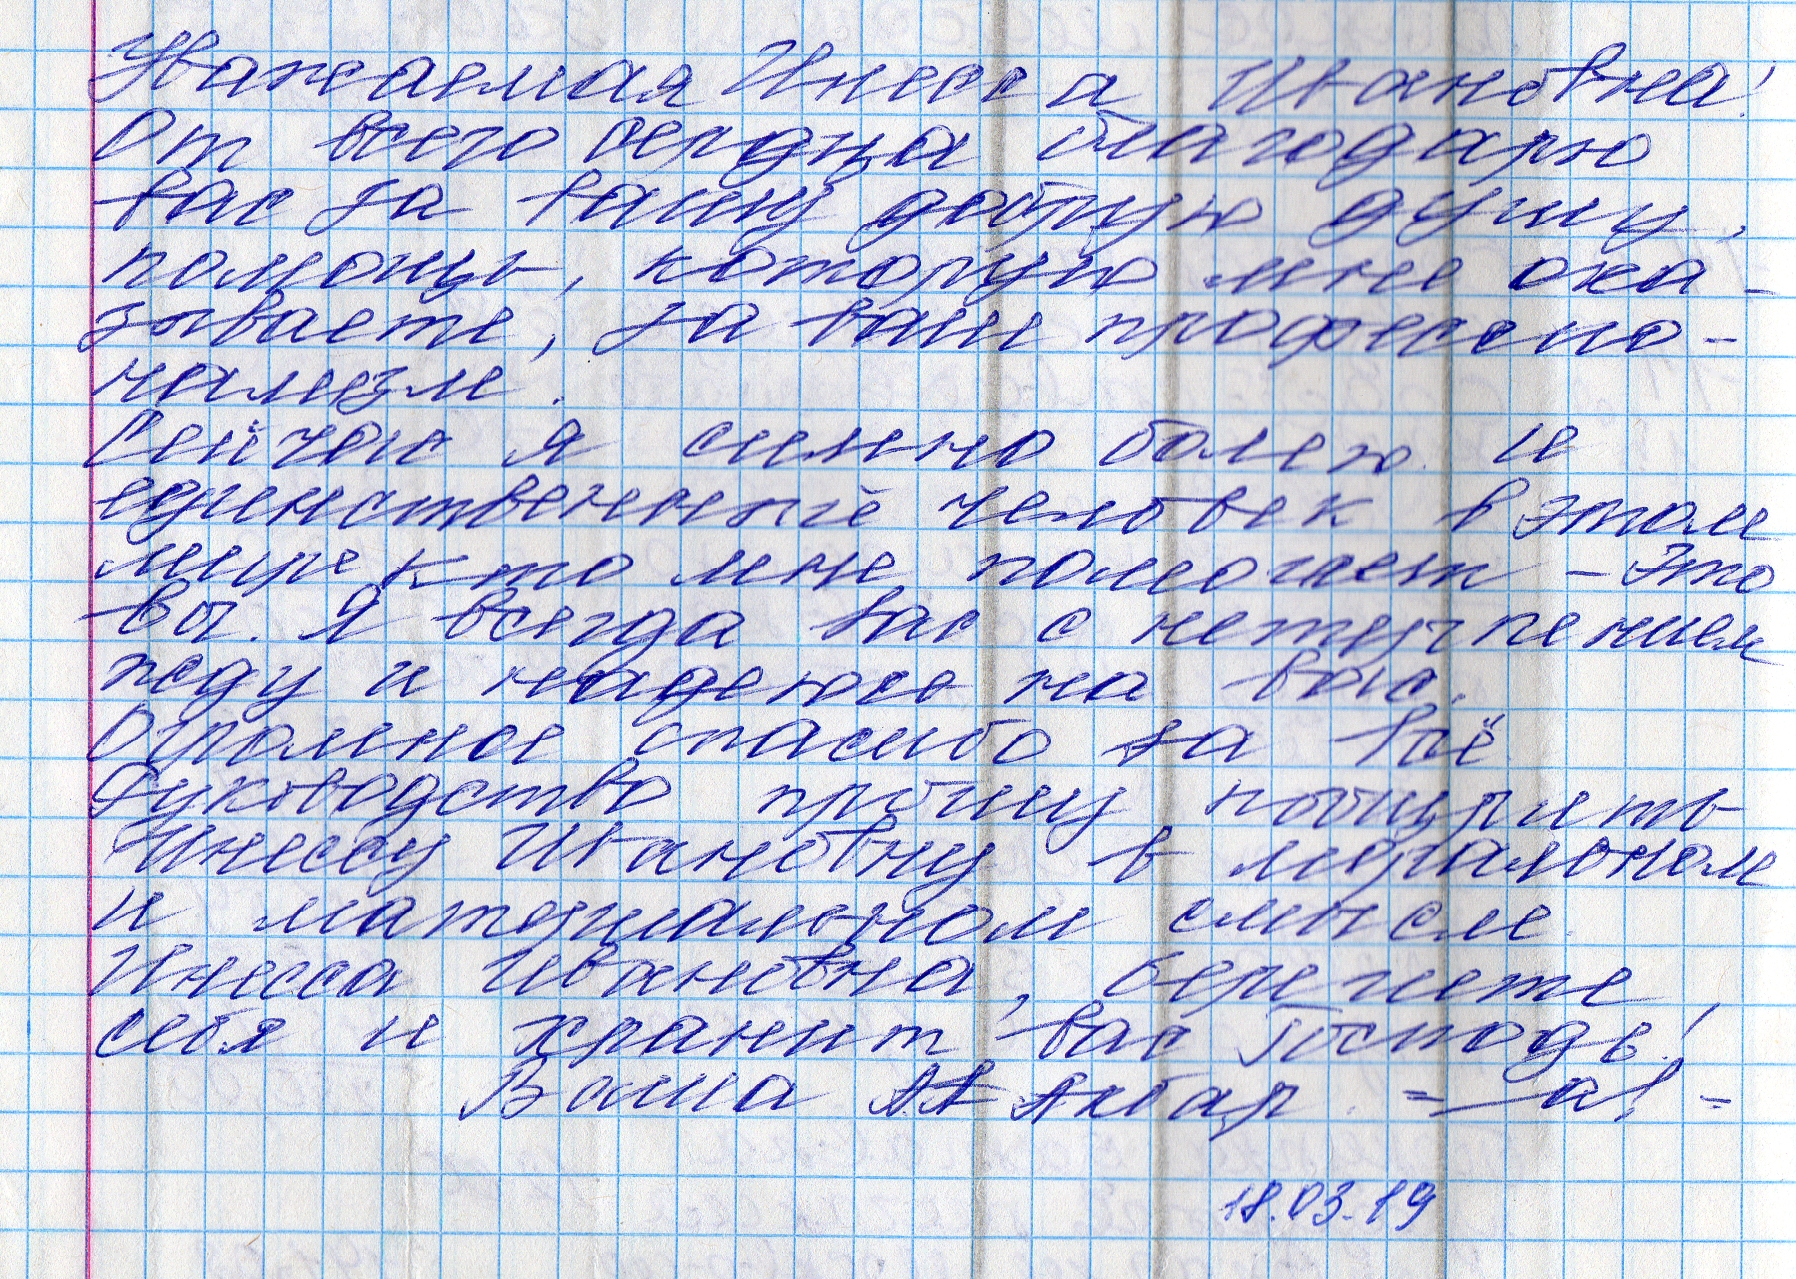 Уважаемая Инесса Ивановна!
От всего сердца благодарю
вас за вашу добрую душу,
помощь, которую мне ока-
зываете, за ваш професио-
нализм.
Сейчас я сильно болею и
единственный человек в этом
мире кто мне помогает - это
вы. Я всегда вас с нетерпением
жду и надеюсь на вас.
Огромное спасибо за всё
Руководство прошу поощрить
Инессу Ивановну в моральном
и материальном смысле.
Инесса Ивановна, берегите
себя и хранит вас Господь!
Ваша А.А Акбар
18.03.19